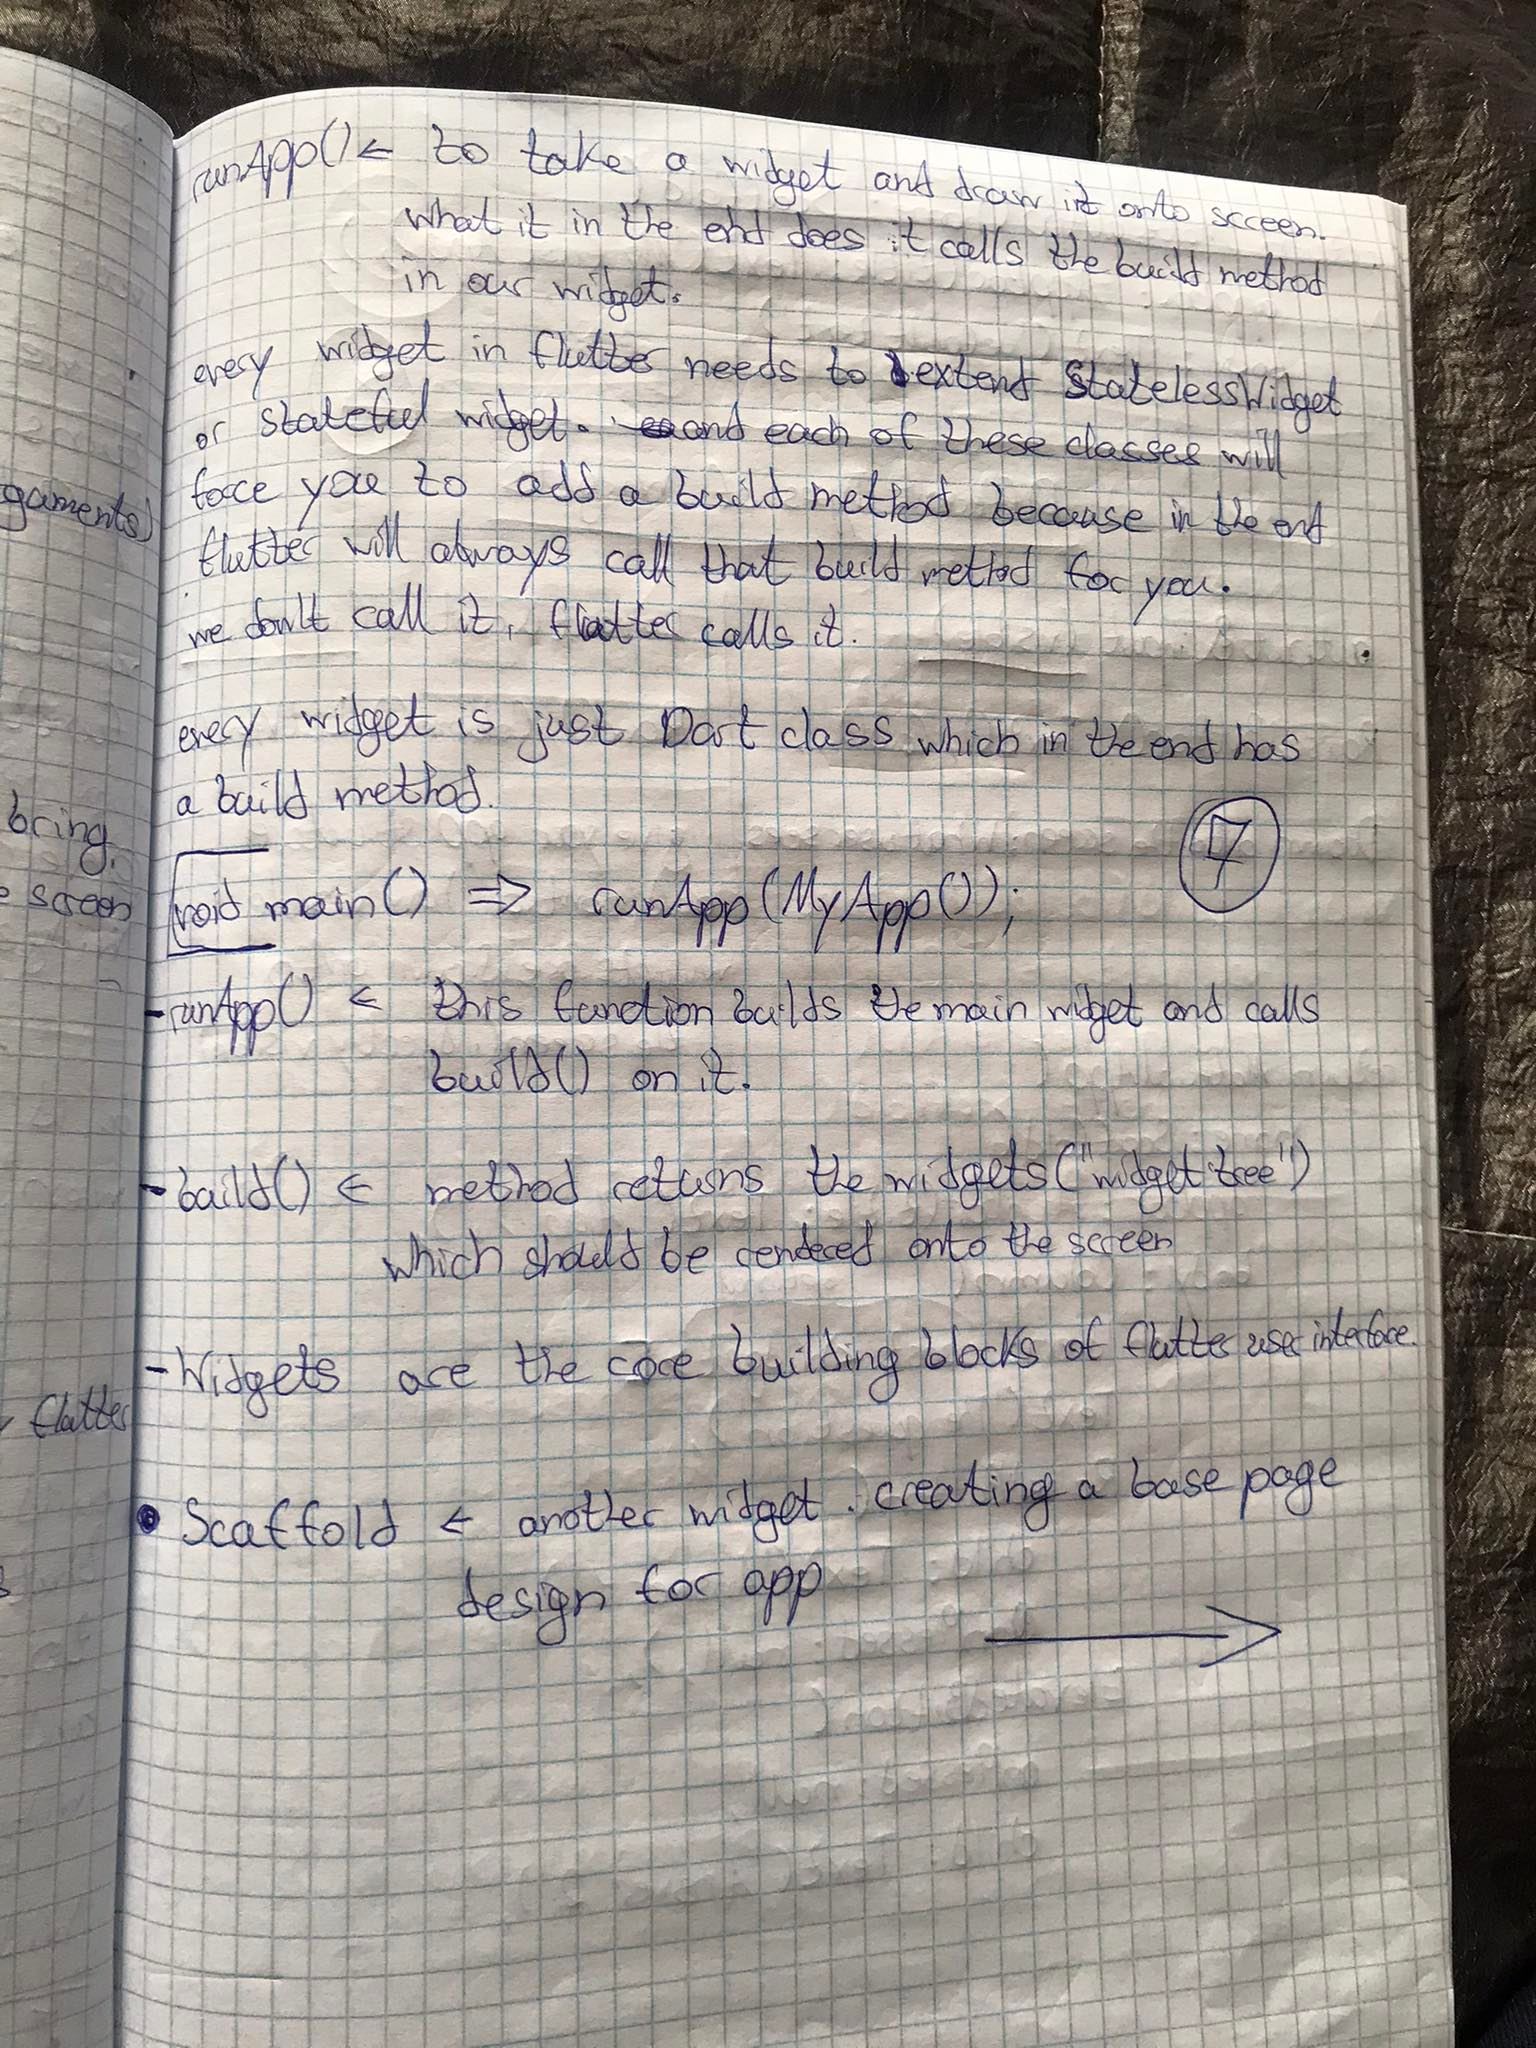 runApp() ← to take a widget and draw it onto screen.
what it in the end does it calls the build method
in our widget.
every widget in flutter needs to extend StatelessWidget
or stateful widget. and each of these classes will
force you to add a build method because in the end
flutter will always call that build method for you.
we don't call it, flutter calls it.
every widget is just Dart class which in the end has
a build method.
7
void main() => runApp(MyApp());
-runApp() ← this function builds the main widget and calls
build() on it.
-build() ← method returns the widgets ("widget tree")
which should be rendered onto the screen
-Widgets are the core building blocks of flutter user interface.
• Scaffold ← another widget. creating a base page
design for app
→
guments)
bring.
screen
flutter